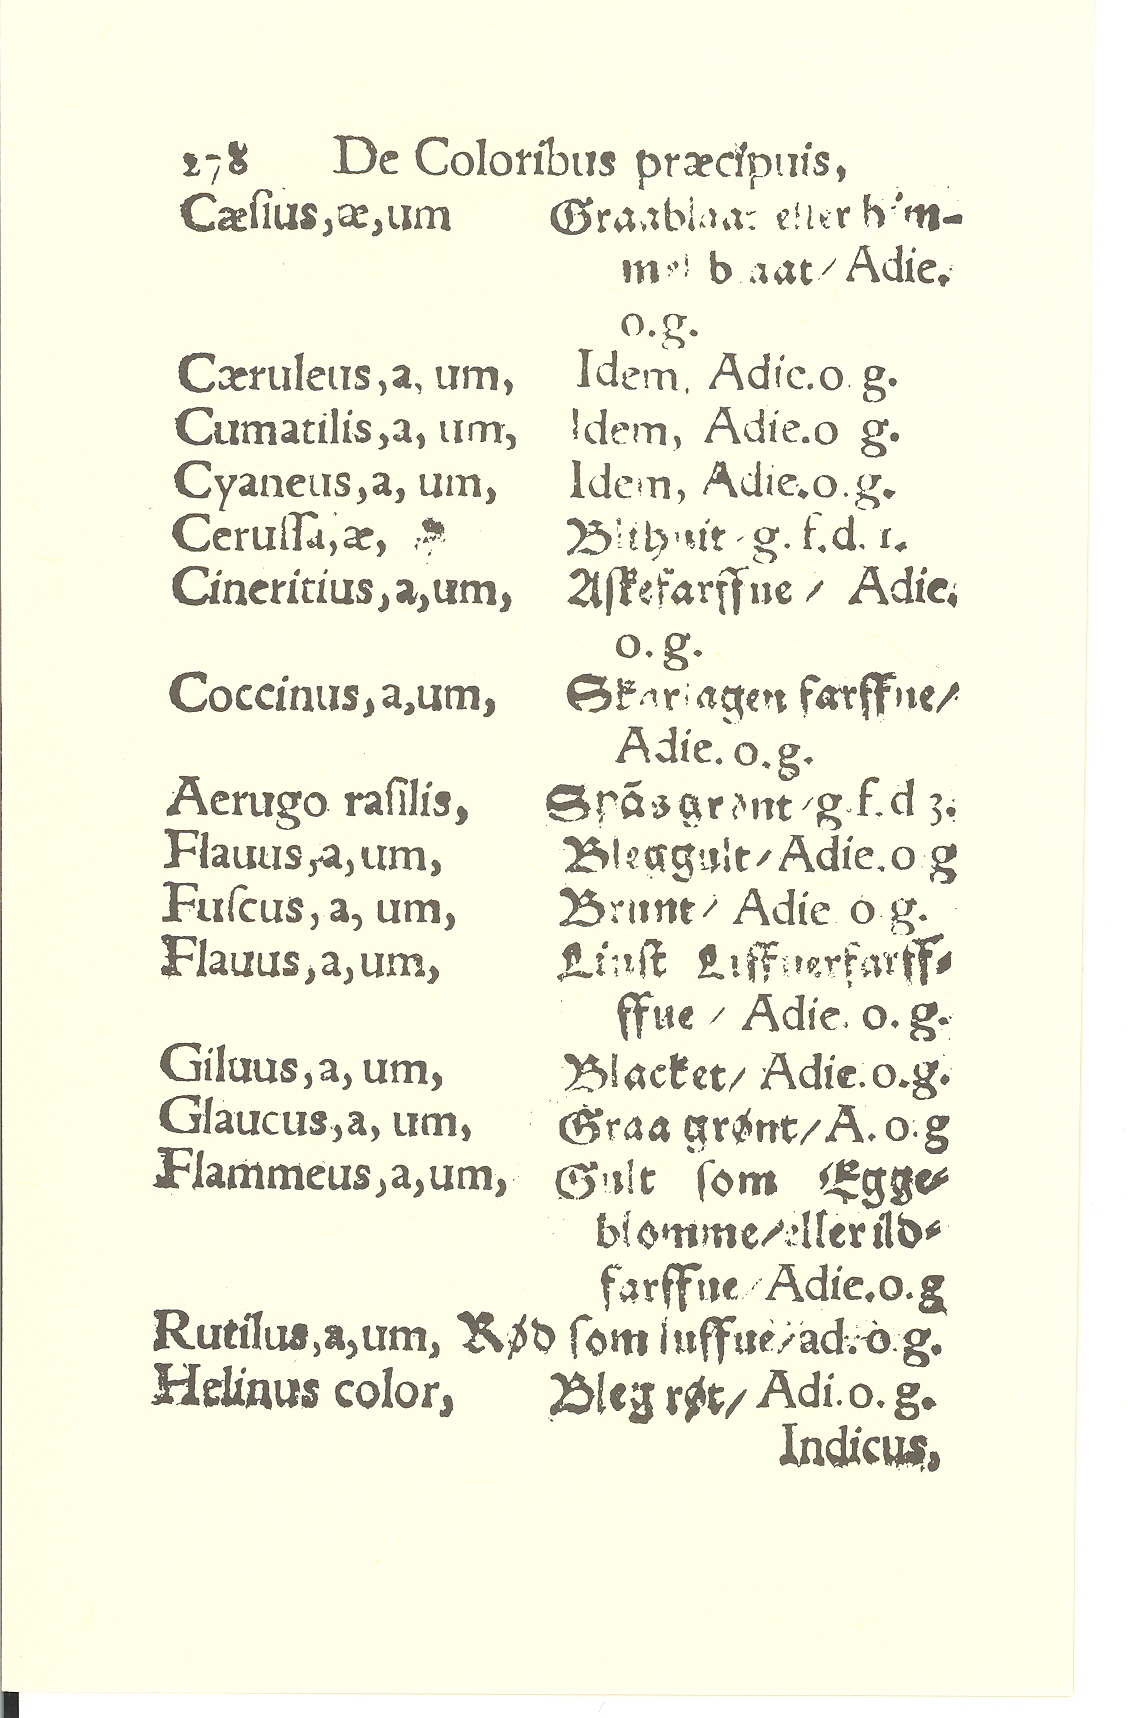 278 De Coloribus præcipuis,
Cæſius,æ,um Graablaat eller him-
mel blaat/ Adie.
o.g.
Cæruleus,a, um, Idem, Adie.o g.
Cumatilis,a, um, Idem, Adie.o g.
Cyaneus,a, um, Idem, Adie.o.g.
Ceruſſa,æ, Blihuit/g. f.d. 1.
Cineritius,a,um, Aſkefarffue / Adie.
o.g.
Coccinus,a,um, Skarlagen farffue/
Adie. o.g.
Aerugo raſilis, Spāsgrønt/g.f.d 3.
Flauus,a,um, Bleggult/Adie.o g
Fuſcus,a, um, Brunt/ Adie o g.
Flauus,a,um, Liuſt Liffuerfarff-
ffue / Adie. o.g.
Giluus,a, um, Blacket/ Adie.o.g.
Glaucus,a, um, Graa grønt/A. o.g
Flammeus,a,um, Gult ſom Egge-
blomme/eller ild-
farffue/Adie.o.g
Rutilus,a,um, Rød ſom luffue/ad.o g.
Helinus color, Bleg røt/ Adi.o. g.
Indicus,